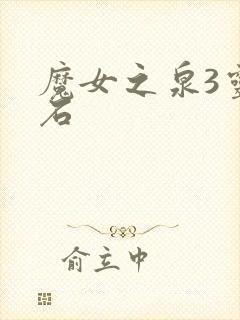 魔女之泉3靈
石
俞立中